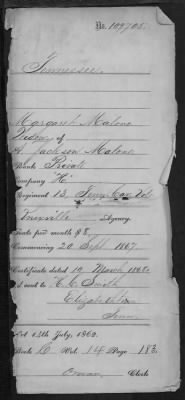 No. 109705.
Tennessee.
Margaret Malone
Widow of
A. Jackson Malone
Rank Private
Company "H"
Regiment 13, Tenn Cav Vols
Knoxville Agency.
Rate per month $8,
Commencing 20 Sept 1867.
Certificate dated 19 March 1868
& sent to H. C. Smith
Elizabethton
Tenn.
Act 14th July, 1862.
Book D Vol. 14 Page 183
Clerk